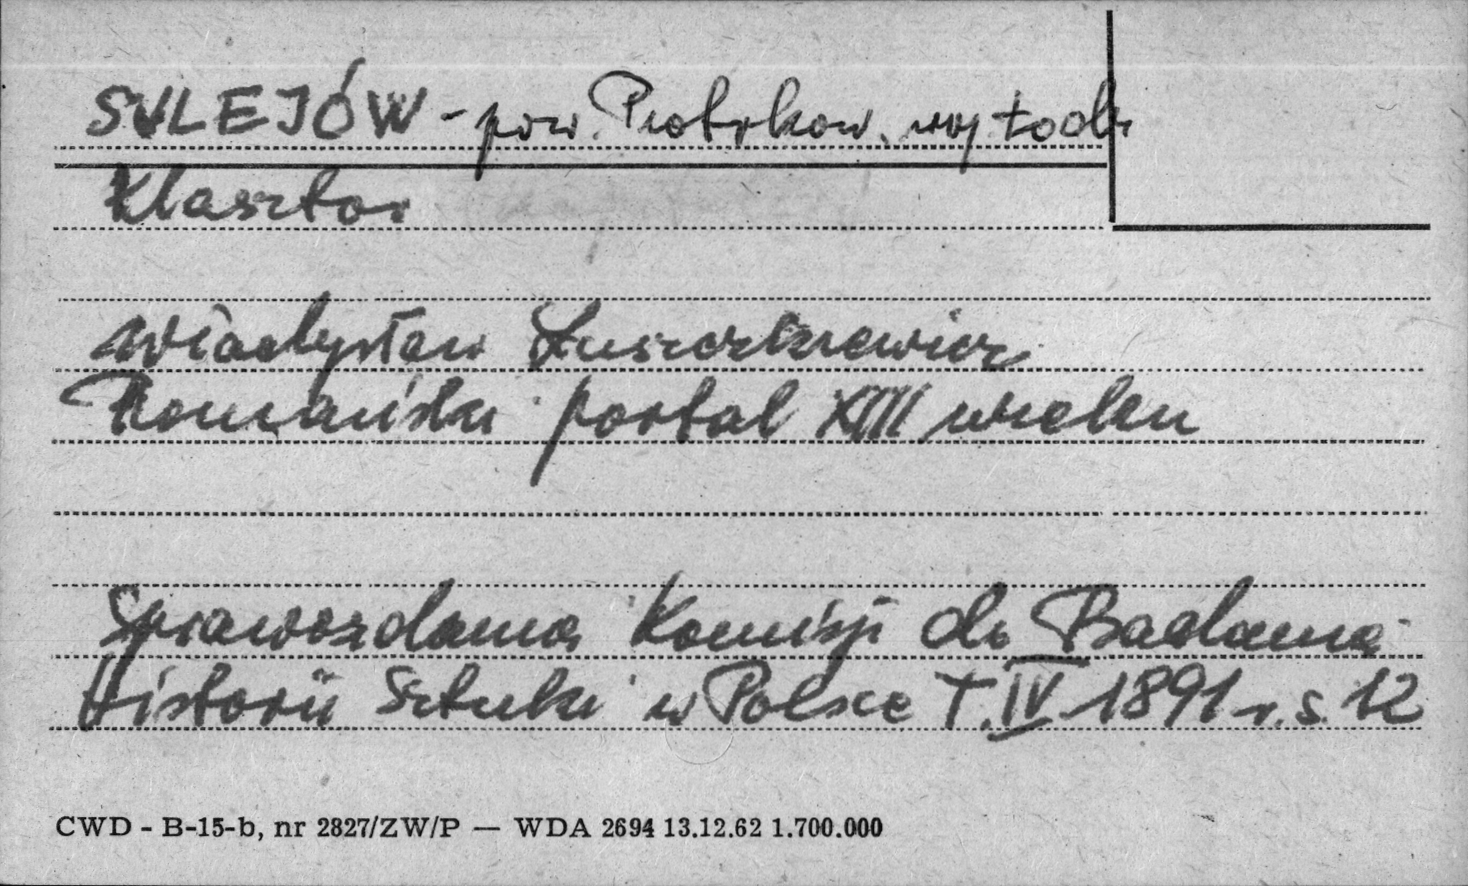 SULEJÓW - pow. Piotrków. woj Łódź
Klasztor
Władysław Łuszczkiewicz
Romański portal XIII wieku
Sprawozdania Komisji do Badania
Historii Sztuki w Polsce T. IV 1891 r. s. 12
CWD - B-15-b, nr 2827/ZW/P — WDA 2694 13.12.62 1.700.000